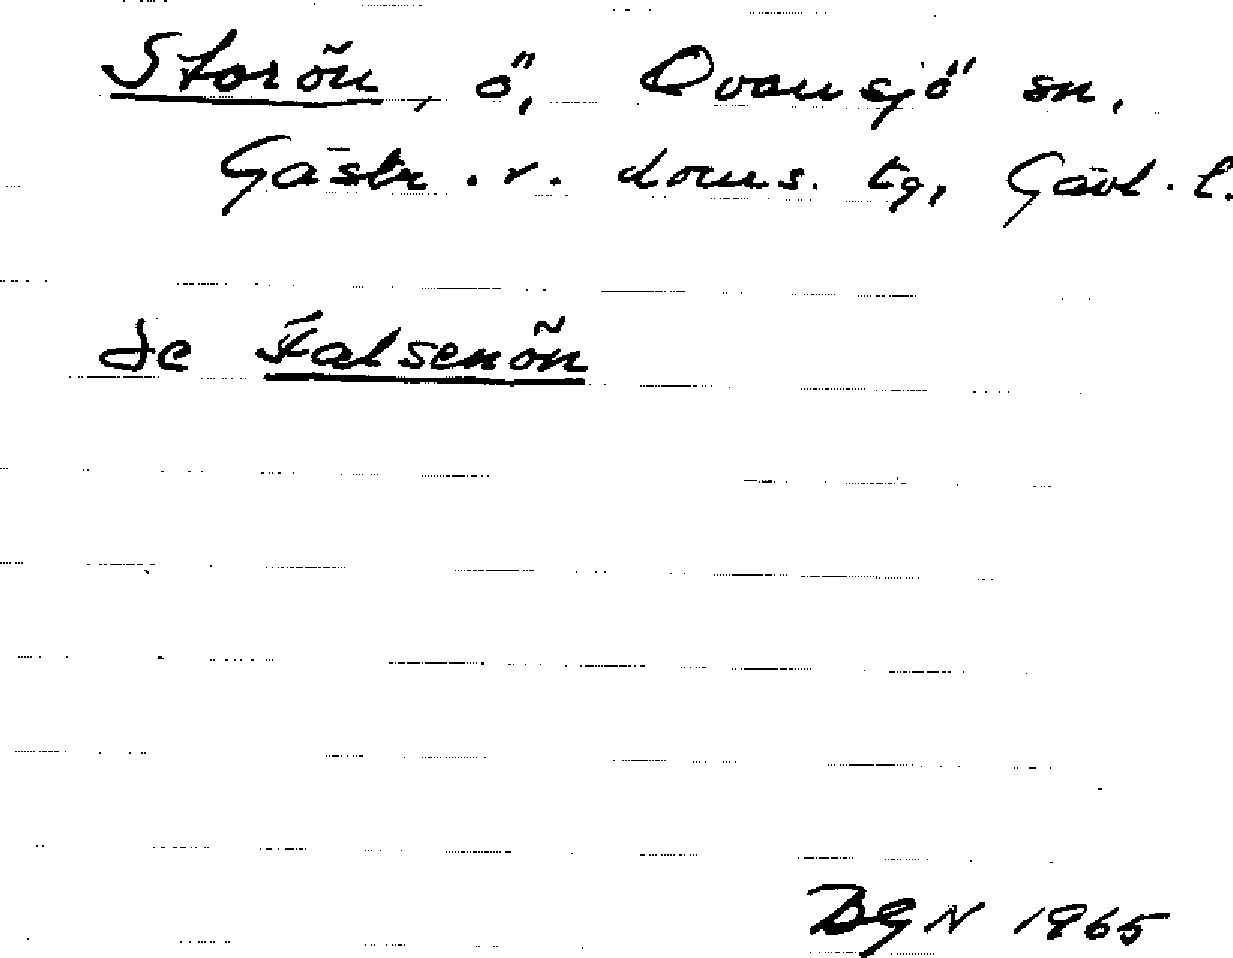 Storön, ö, Ovansjö sn,
Gästr. v. doms. tg, Gävl. l.
se Falsenön
BGN 1965